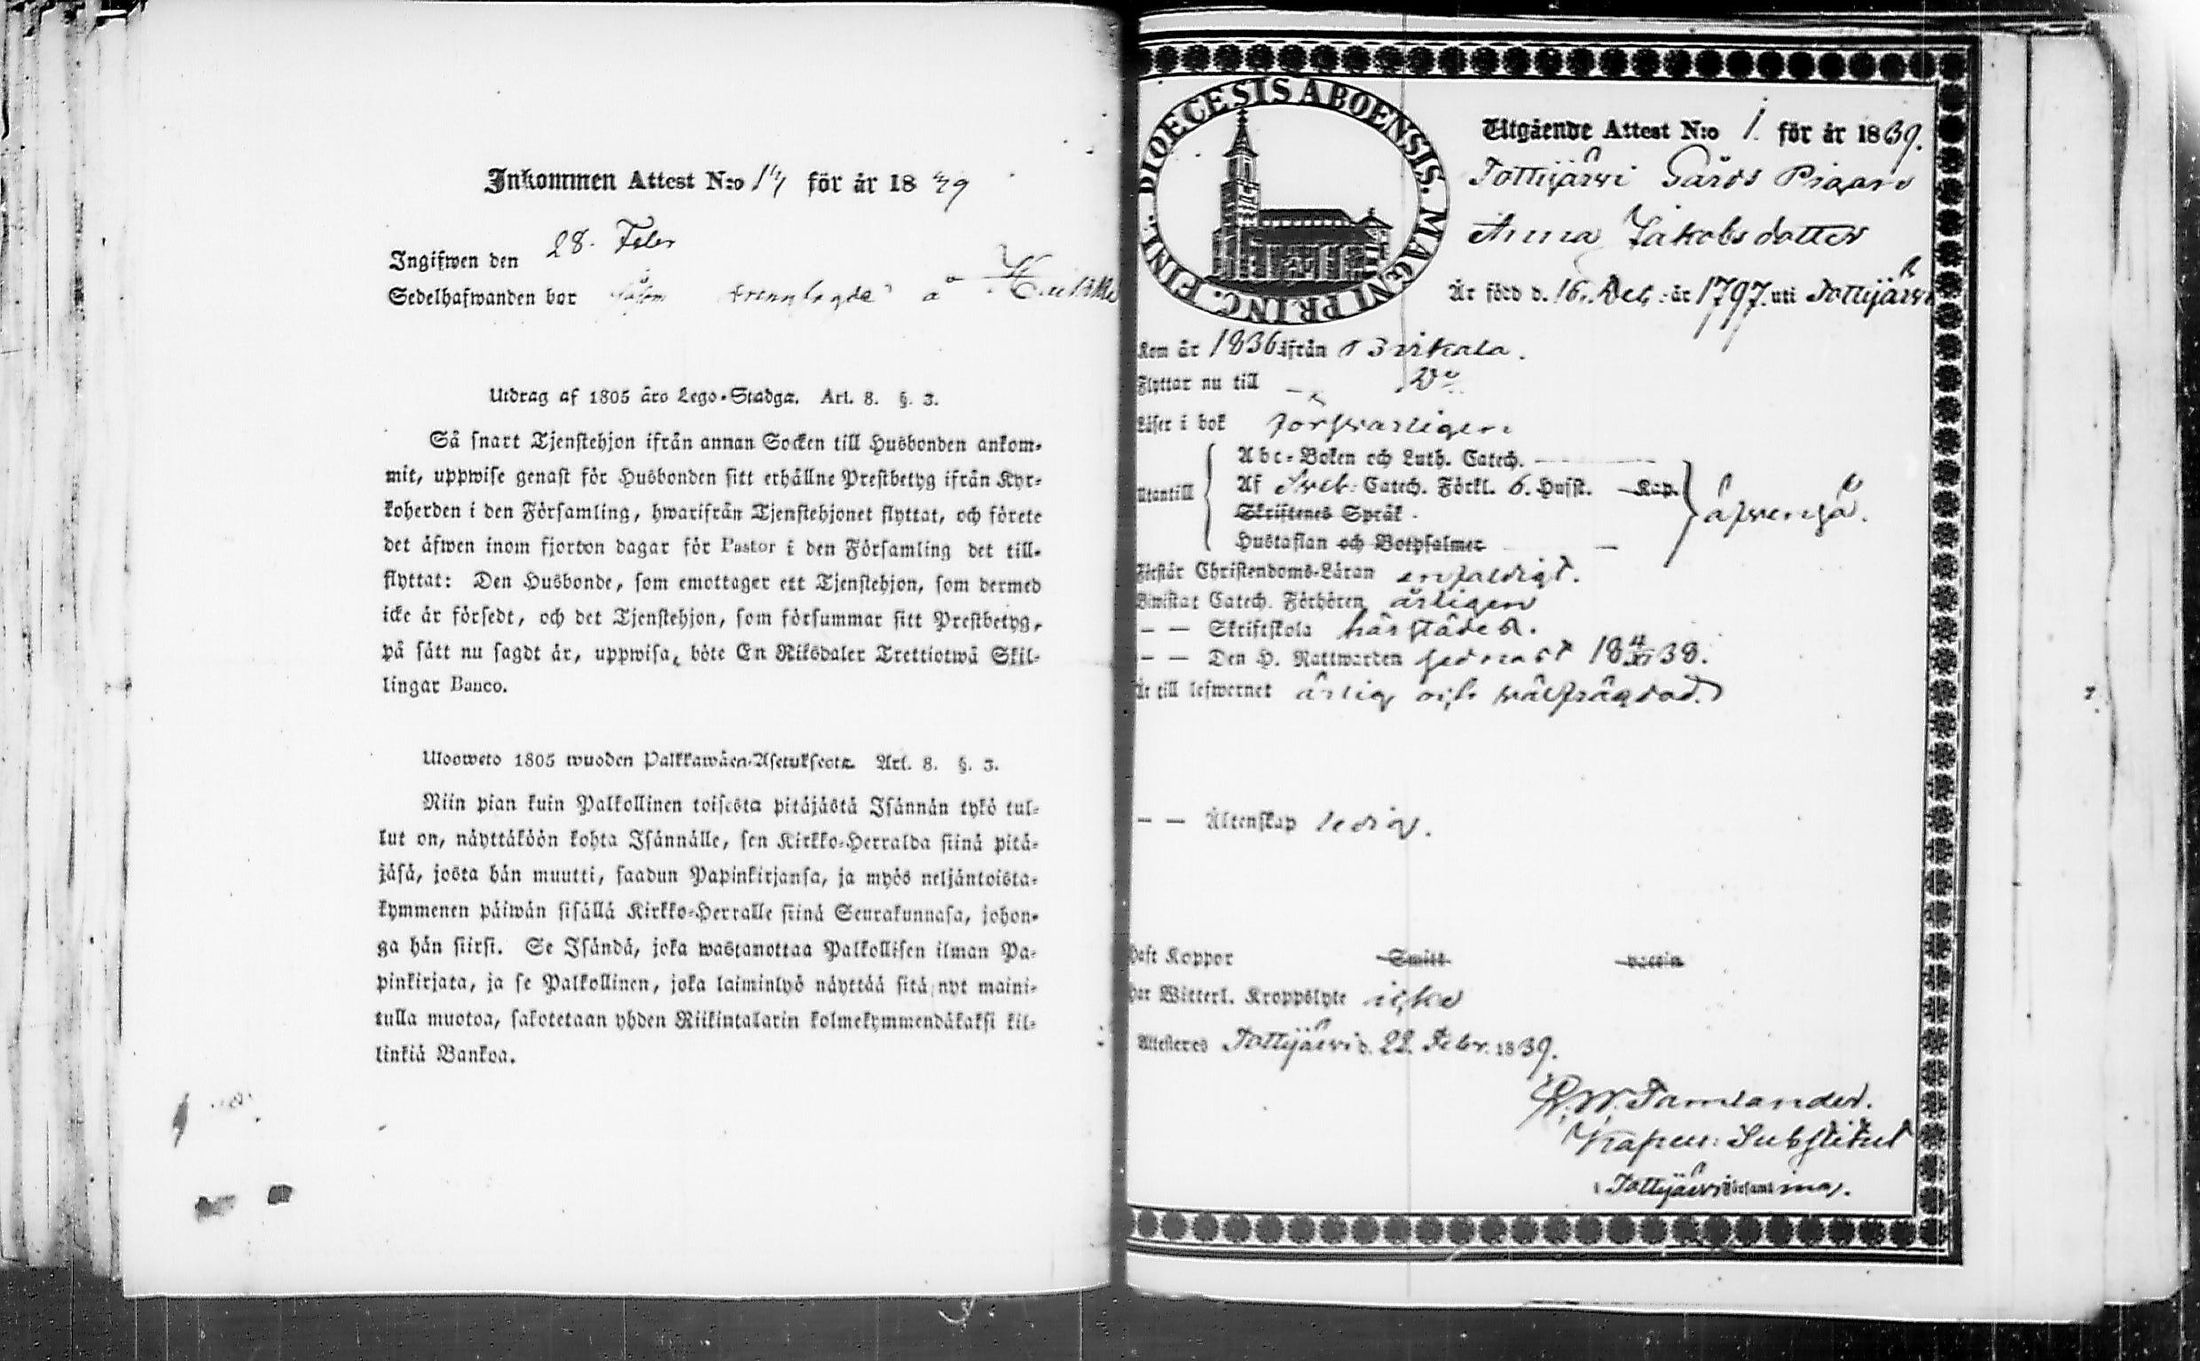 Inkommen Attest N:o 14 för år 1839
Ingifwen den 28. Febr
Sedelhafwanden bor å
Utdrag af 1805 års Lego-Stadga. Art. 8. §. 3.
Så snart Tjenstehjon ifrån annan Socken till Husbonden ankom-
mit, uppwise genast för Husbonden sitt erhållne Prestbetyg ifrån Kyr-
koherden i den Församling, hwarifrån Tjenstehjonet flyttat, och förete
det äfwen inom fjorton dagar för Pastor i den Församling det till-
flyttat: Den Husbonde, som emottager ett Tjenstehjon, som dermed
icke är försedt, och det Tjenstehjon, som försummar sitt Prestbetyg,
på sätt nu sagdt är, uppwisa, böte En Riksdaler Trettiotwå Skil-
lingar Banco.
Ulosweto 1805 wuoden Palkkawäen-Asetuksesta. Art. 8. §. 3.
Niin pian kuin Palkollinen toisesta pitäjästä Isännän tykö tul-
lut on, näyttäköön kohta Isännälle, sen Kirkko-Herralda siinä pitä-
jäsä, josta hän muutti, saadun Papinkirjansa, ja myös neljäntoista-
kymmenen päiwän sisällä Kirkko-Herralle siinä Seurakunnasa, johon-
ga hän siirsi. Se Isändä, joka wastanottaa Palkollisen ilman Pa-
pinkirjata, ja se Palkollinen, joka laiminlyö näyttää sitä nyt maini-
tulla muotoa, sakotetaan yhden Riikintalarin kolmekymmendäkaksi kil-
linkiä Bankoa.
DIOECESIS ABOENSIS. MAGNI PRINC. FINL.
Utgående Attest N:o 1. för år 1839.
Tottijärvi Gårds Pigan
Anna Jakobsdotter
Är född d. 16. Dec. år 1797. uti Tottijärvi
Kom år 1836 ifrån Birkala.
Flyttar nu till Do
Läser i bok försvarligen
Utantill
Abc-Boken och Luth. Catech.
Af Sveb: Catech. Förkl. 6. Husst. Kap.
Skriftenes Språk
Hustaflan och Botpsalmer
Förstår Christendoms-Läran enfaldigt.
Biwistat Catech. Förhören årligen
– – Skriftskola härstädes.
– – Den H. Nattwarden sednast 18 4/XI 38.
Är till lefwernet ärlig och välfrägdad.
– – Äktenskap ledig.
Haft Koppor Smitt. vaccin
Har Witterl. Kroppslyte icke
Attesteres Tottijärvi d. 22. Febr. 1839.
Tamlander.
Kapell: Substitut
i Tottijärvi Församling.